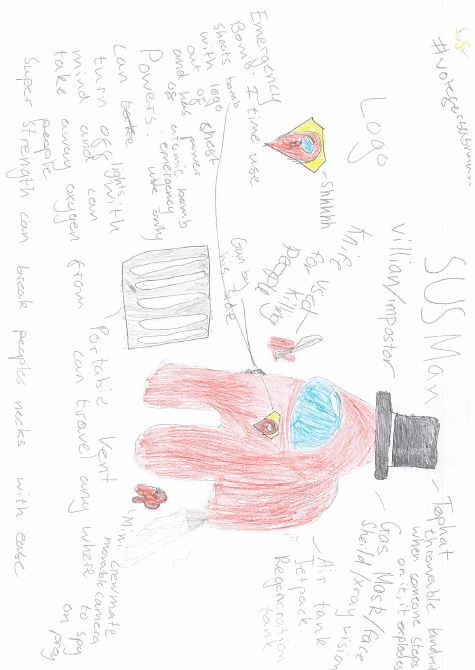 SUS Man
villian/impostor
Logo
Shhhhh
Emergency
Bomb: 1 time use
shoots bomb
with logo
out of chest
and has power
of atomic bomb
emergency
use only
Powers:
Can
turn off lights with
mind and can
take away oxygen from
people
Super strength can break peoples necks with ease
Knife
for use
killing
people
Portable Vent
can travel any where
Mini crewmate
movable camera
to spy
on prey
Air tank
Jetpack
Regeneration
tank
Gas Mask/Face
Sheild/Xray vision
Tophat
throwable
when someone steps
on it, it explodes